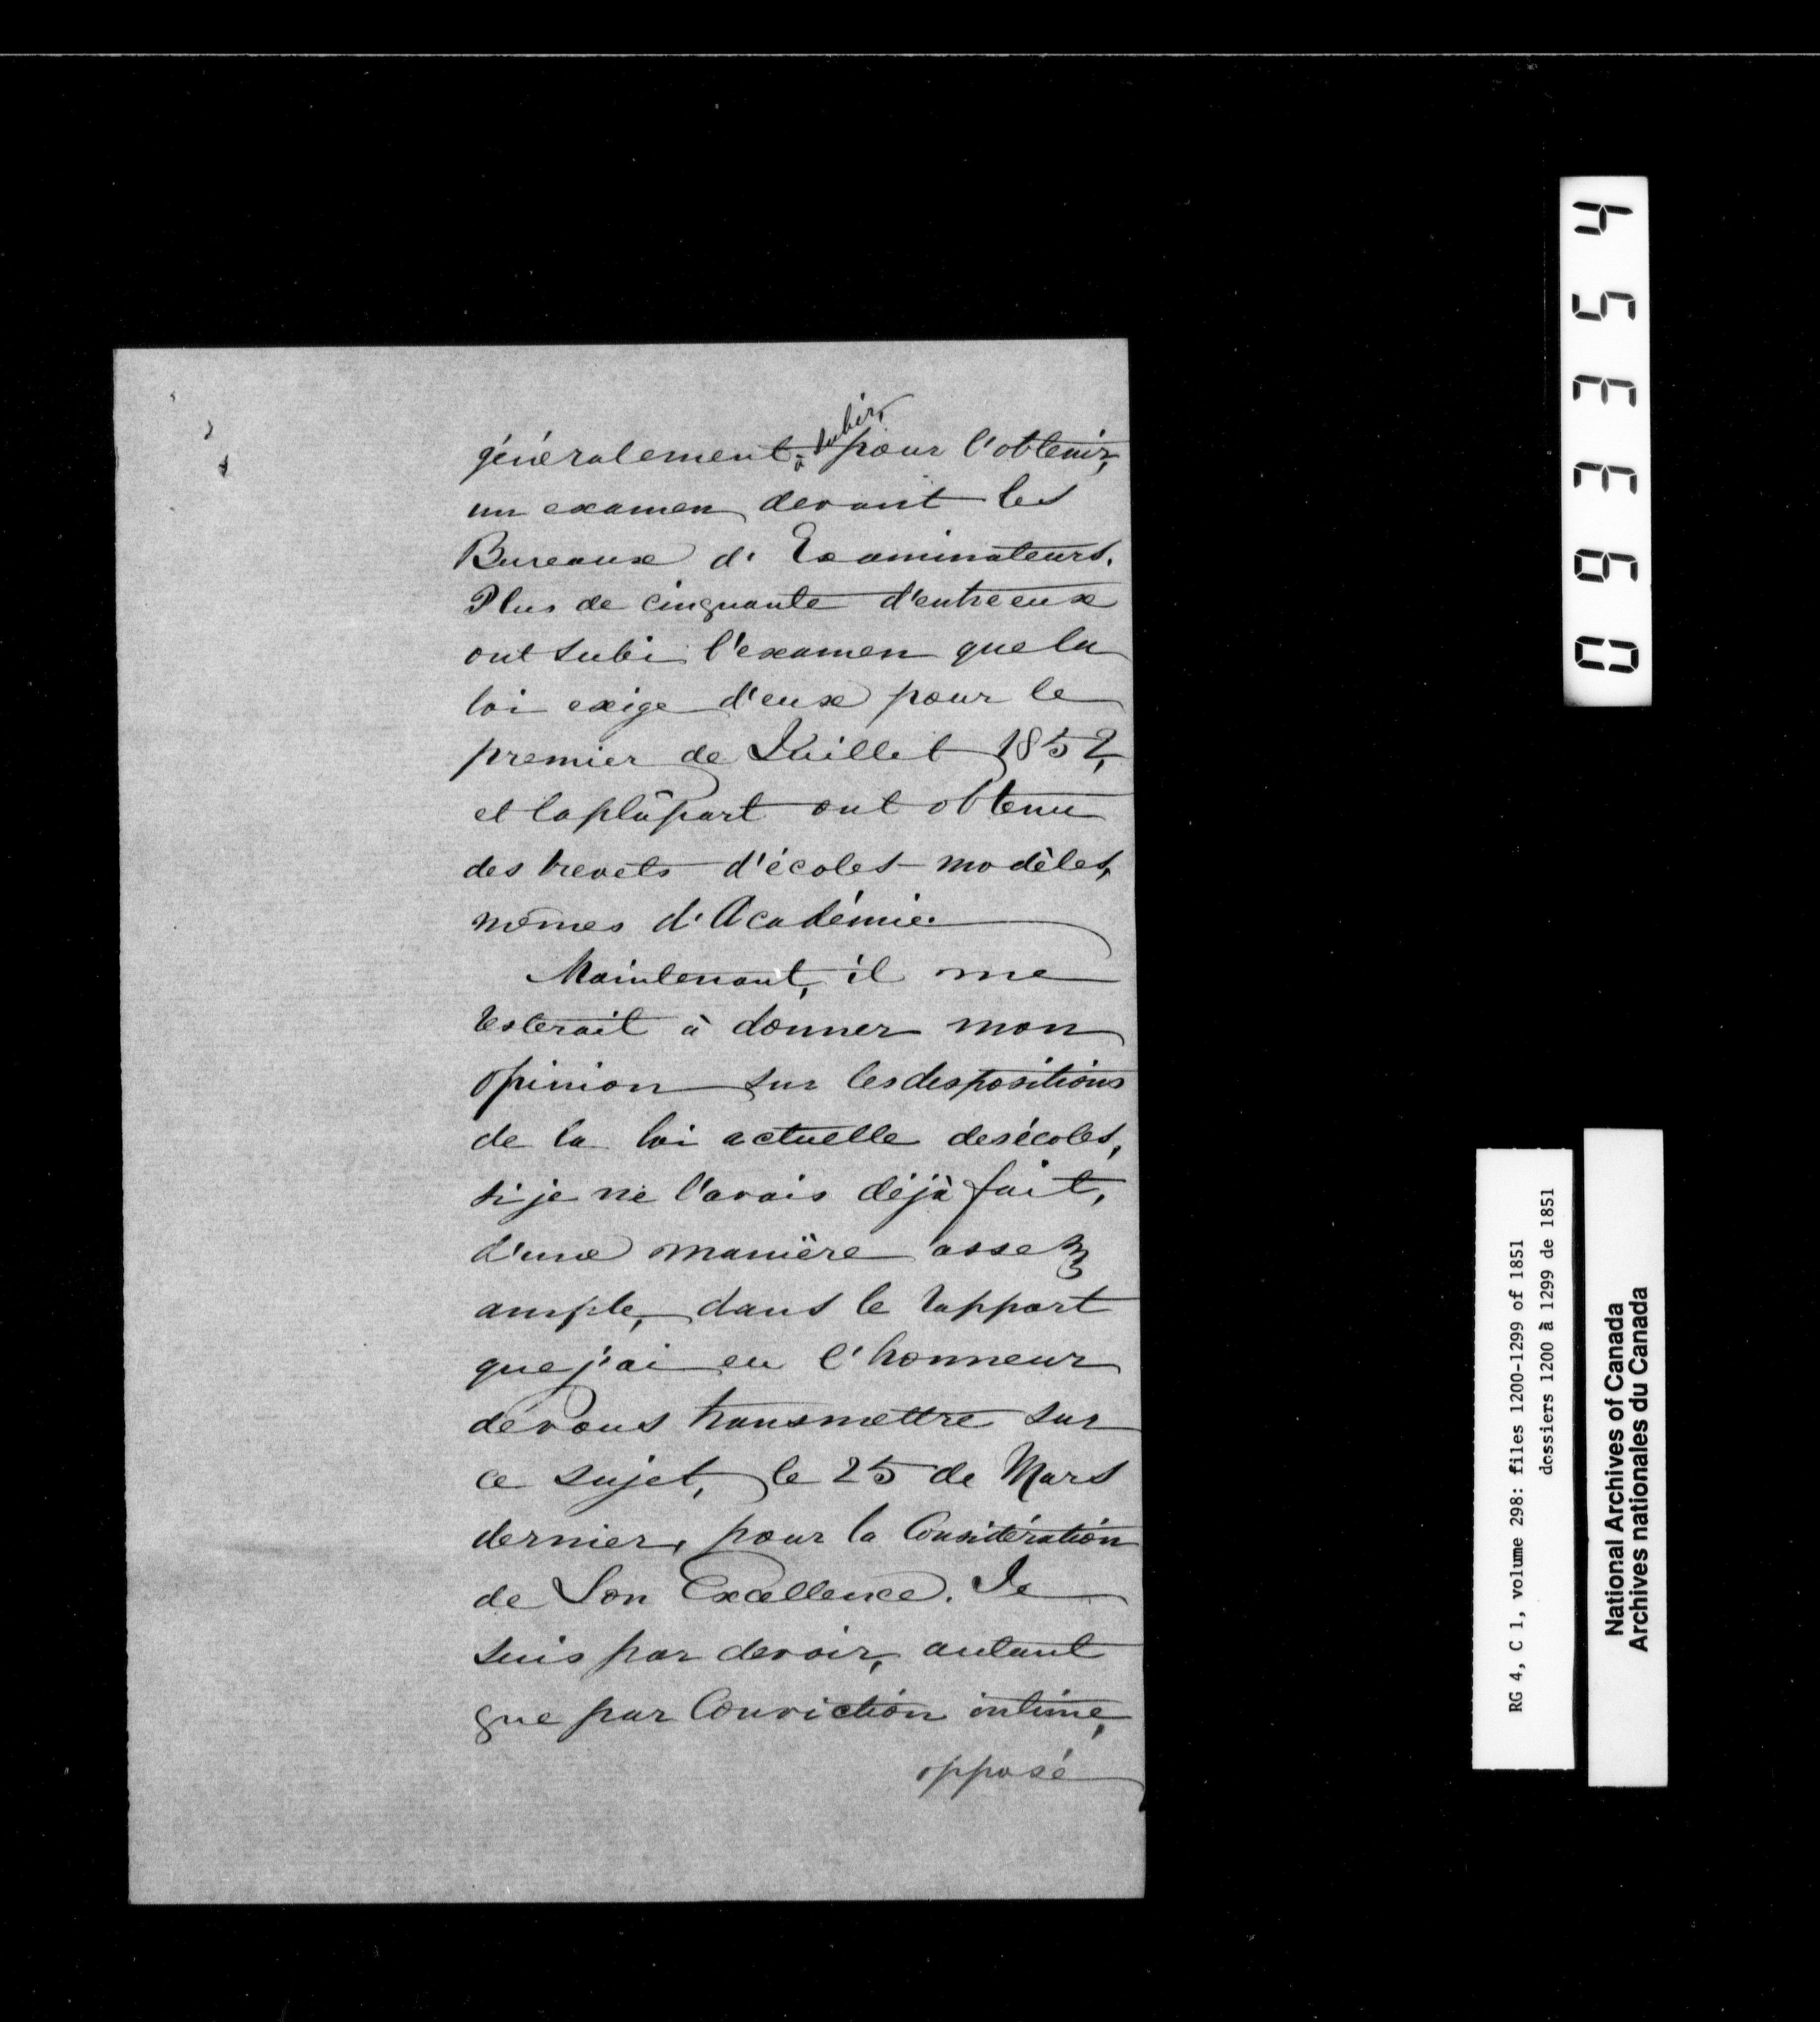 généralement à subir, pour l'obtenir,
un examen devant les
Bureaux d'Examinateurs.
Plus de cinquante d'entre eux
ont subi l'examen que la
loi exige d'eux pour le
premier de Juillet 1852,
et la plûpart ont obtenu
des brevets d'écoles modèles,
mêmes d'Académie.
Maintenant, il me
resterait à donner mon
opinion sur les dispositions
de la loi actuelle des écoles,
si je ne l'avais déjà fait,
d'une manière assez
ample, dans le rapport
que j'ai eu l'honneur
de vous transmettre sur
ce sujet, le 25 de Mars
dernier, pour la Considération
de Son Excellence. Je
suis par devoir, autant
que par Conviction intime,
opposé
093354
RG 4, C 1, volume 298: files 1200-1299 of 1851
dossiers 1200 à 1299 de 1851
National Archives of Canada
Archives nationales du Canada